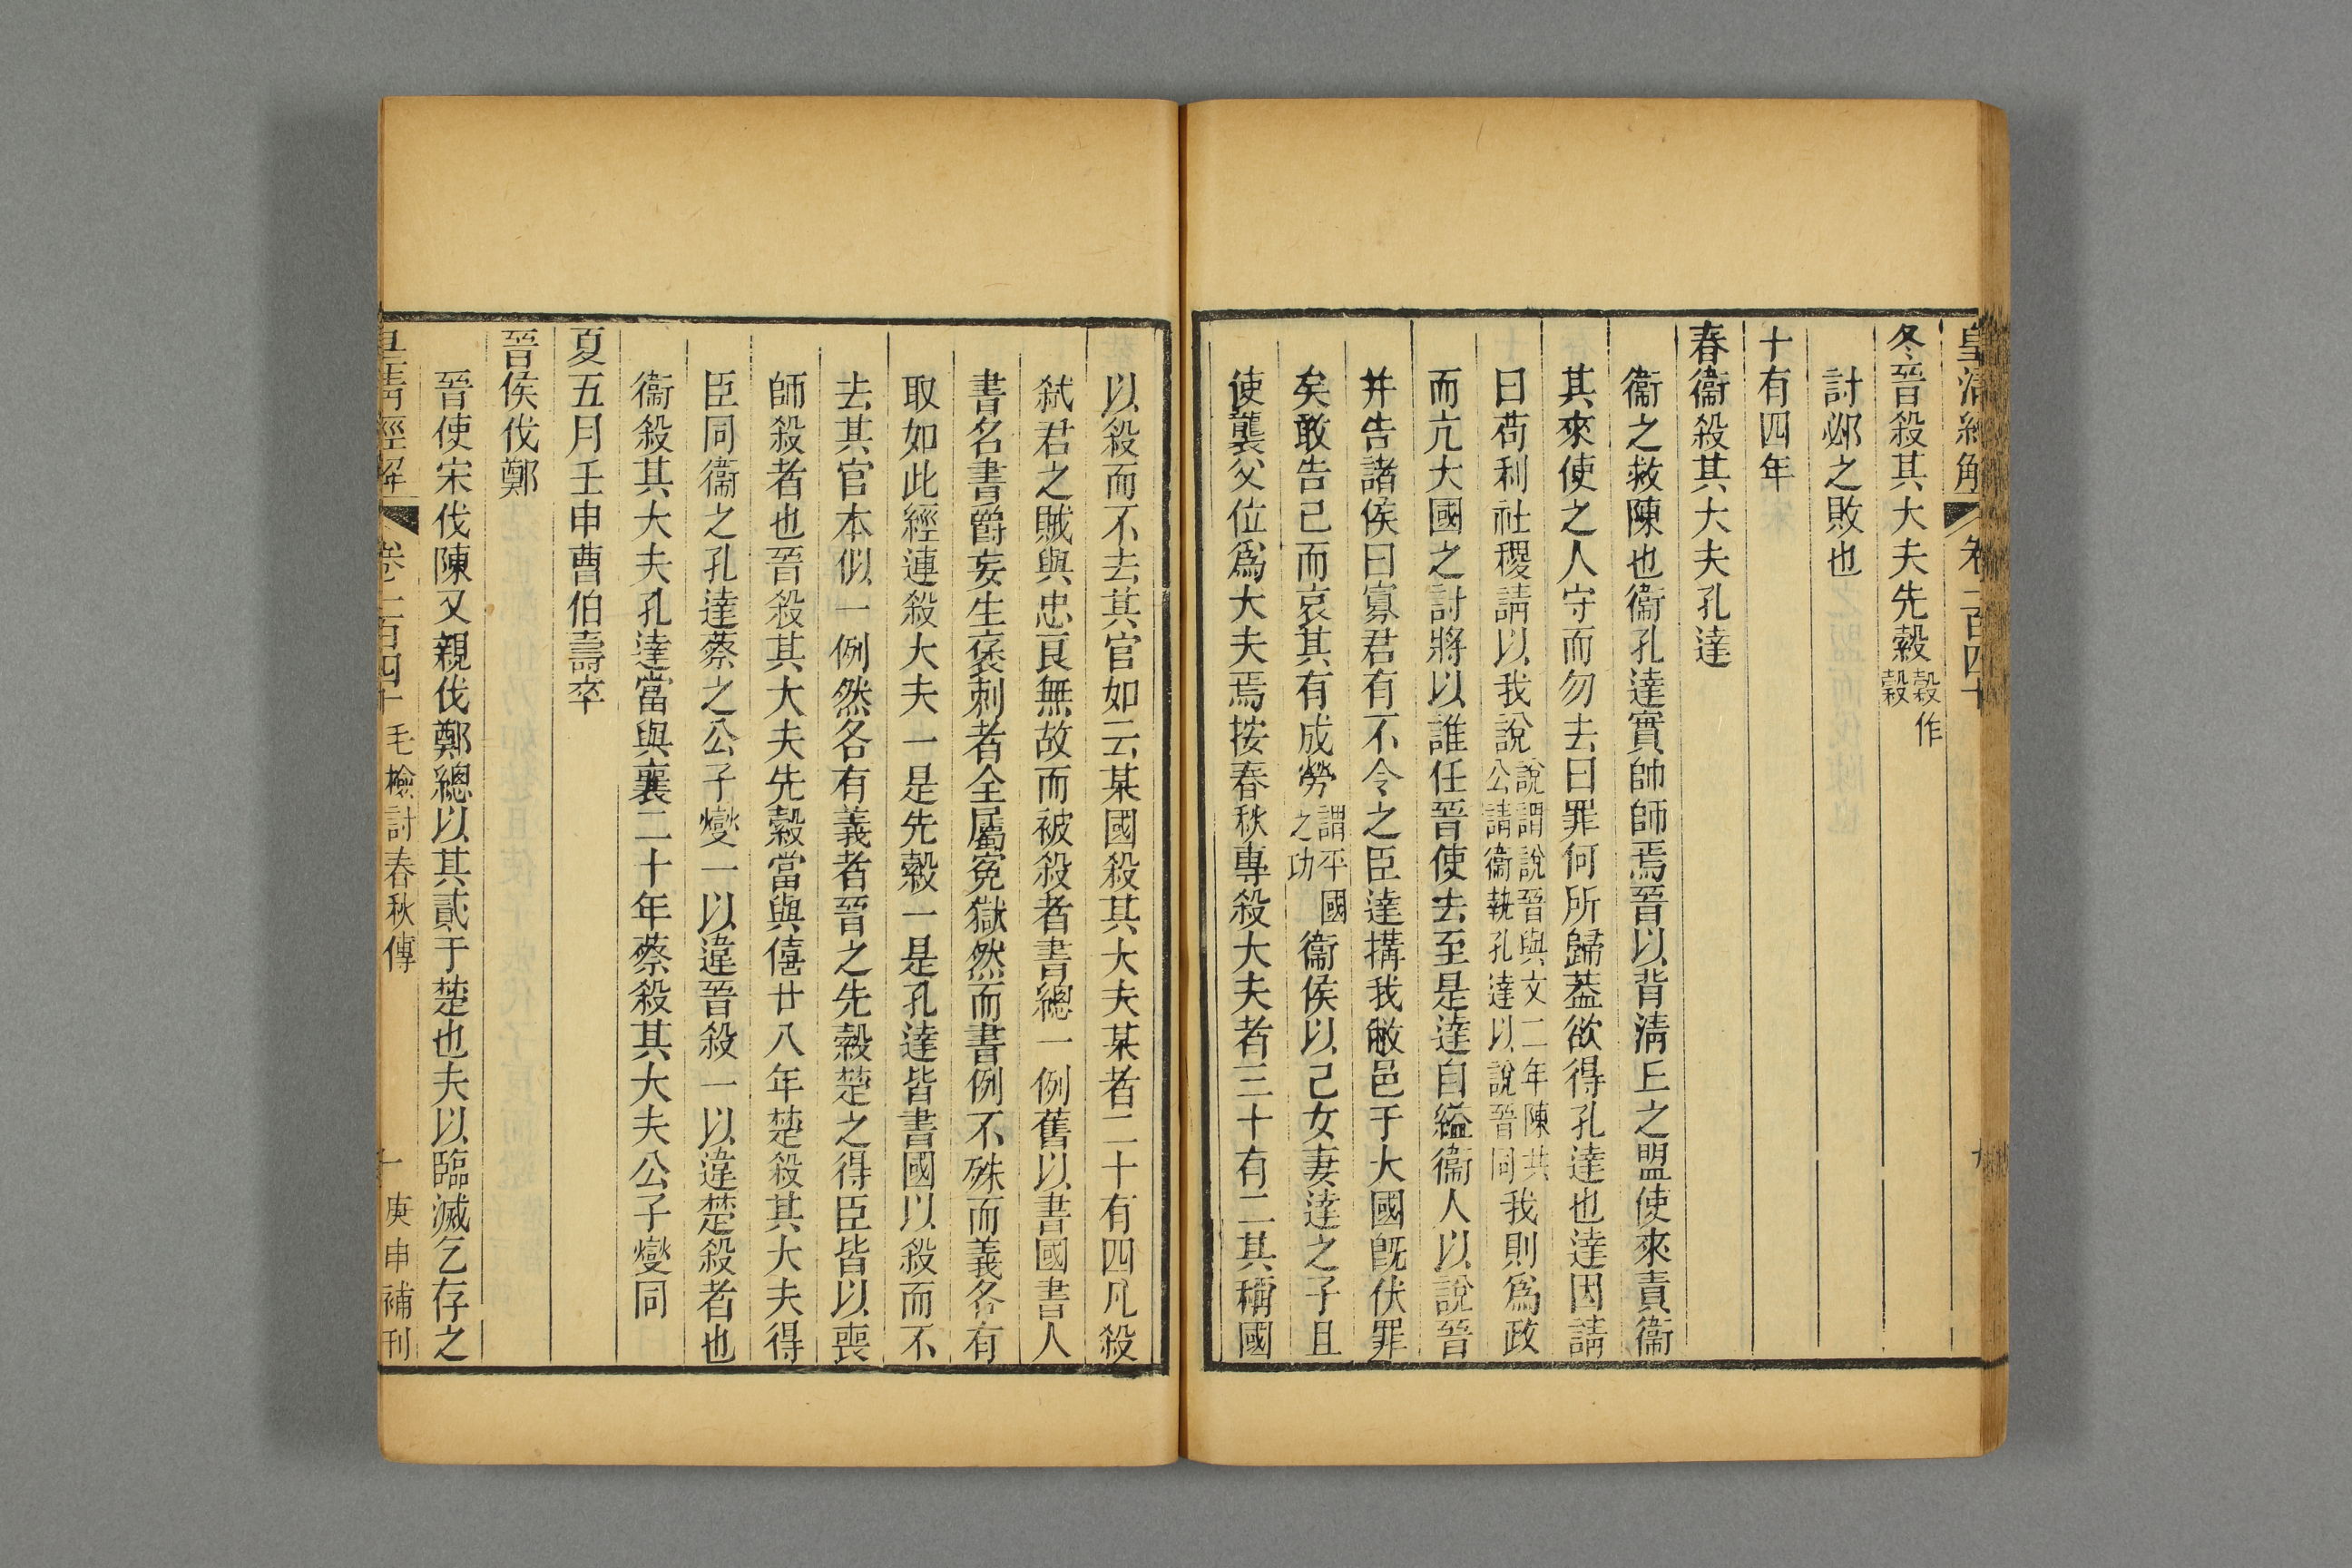 皇清經解 卷一百四十
冬晉殺其大夫先縠縠作穀
討邲之敗也
十有四年
春衞殺其大夫孔達
衞之救陳也衞孔達實帥師焉晉以背淸丘之盟使來責衞
其來使之人守而勿去曰罪何所歸葢欲得孔達也達因請
曰苟利社稷請以我說說謂說晉與文二年陳共公請衞執孔達以說晉同我則爲政
而亢大國之討將以誰任晉使去至是達自縊衞人以說晉
幷告諸侯曰寡君有不令之臣達搆我敝邑于大國旣伏罪
矣敢告已而哀其有成勞謂平國之功衞侯以己女妻達之子且
使襲父位爲大夫焉按春秋專殺大夫者三十有二其稱國
以殺而不去其官如云某國殺其大夫某者二十有四凡殺
弒君之賊與忠良無故而被殺者書總一例舊以書國書人
書名書爵妄生褒刺者全屬寃獄然而書例不殊而義各有
取如此經連殺大夫一是先縠一是孔達皆書國以殺而不
去其官本似一例然各有義者晉之先縠楚之得臣皆以喪
師殺者也晉殺其大夫先縠當與僖廿八年楚殺其大夫得
臣同衞之孔達蔡之公子燮一以違晉殺一以違楚殺者也
衞殺其大夫孔達當與襄二十年蔡殺其大夫公子燮同
夏五月壬申曹伯壽卒
晉侯伐鄭
晉使宋伐陳又親伐鄭總以其貳于楚也夫以臨滅乞存之
皇淸經解 卷一百四十 毛檢討春秋傳 庚申補刊